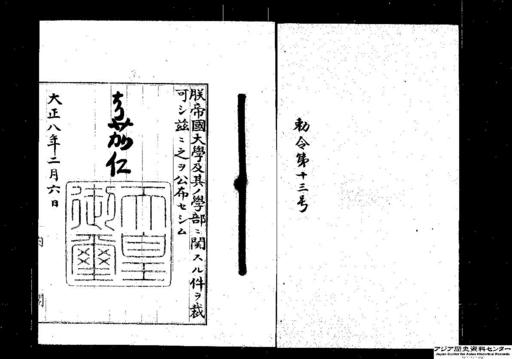 勅令第十三号
朕帝國大學及其ノ學部ニ関スル件ヲ裁
可シ茲ニ之ヲ公布セシム
嘉仁
天皇
御璽
大正八年二月六日
内閣
アジア歴史資料センター
Japan Center for Asian Historical Records